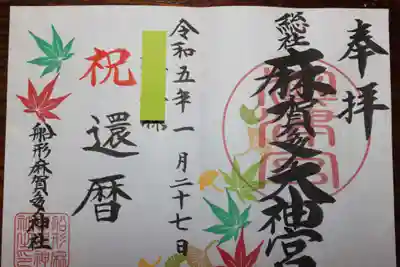 奉拝
総社
麻賀多大神宮
令和五年一月二十七日
様
祝
還暦
船形麻賀多神社